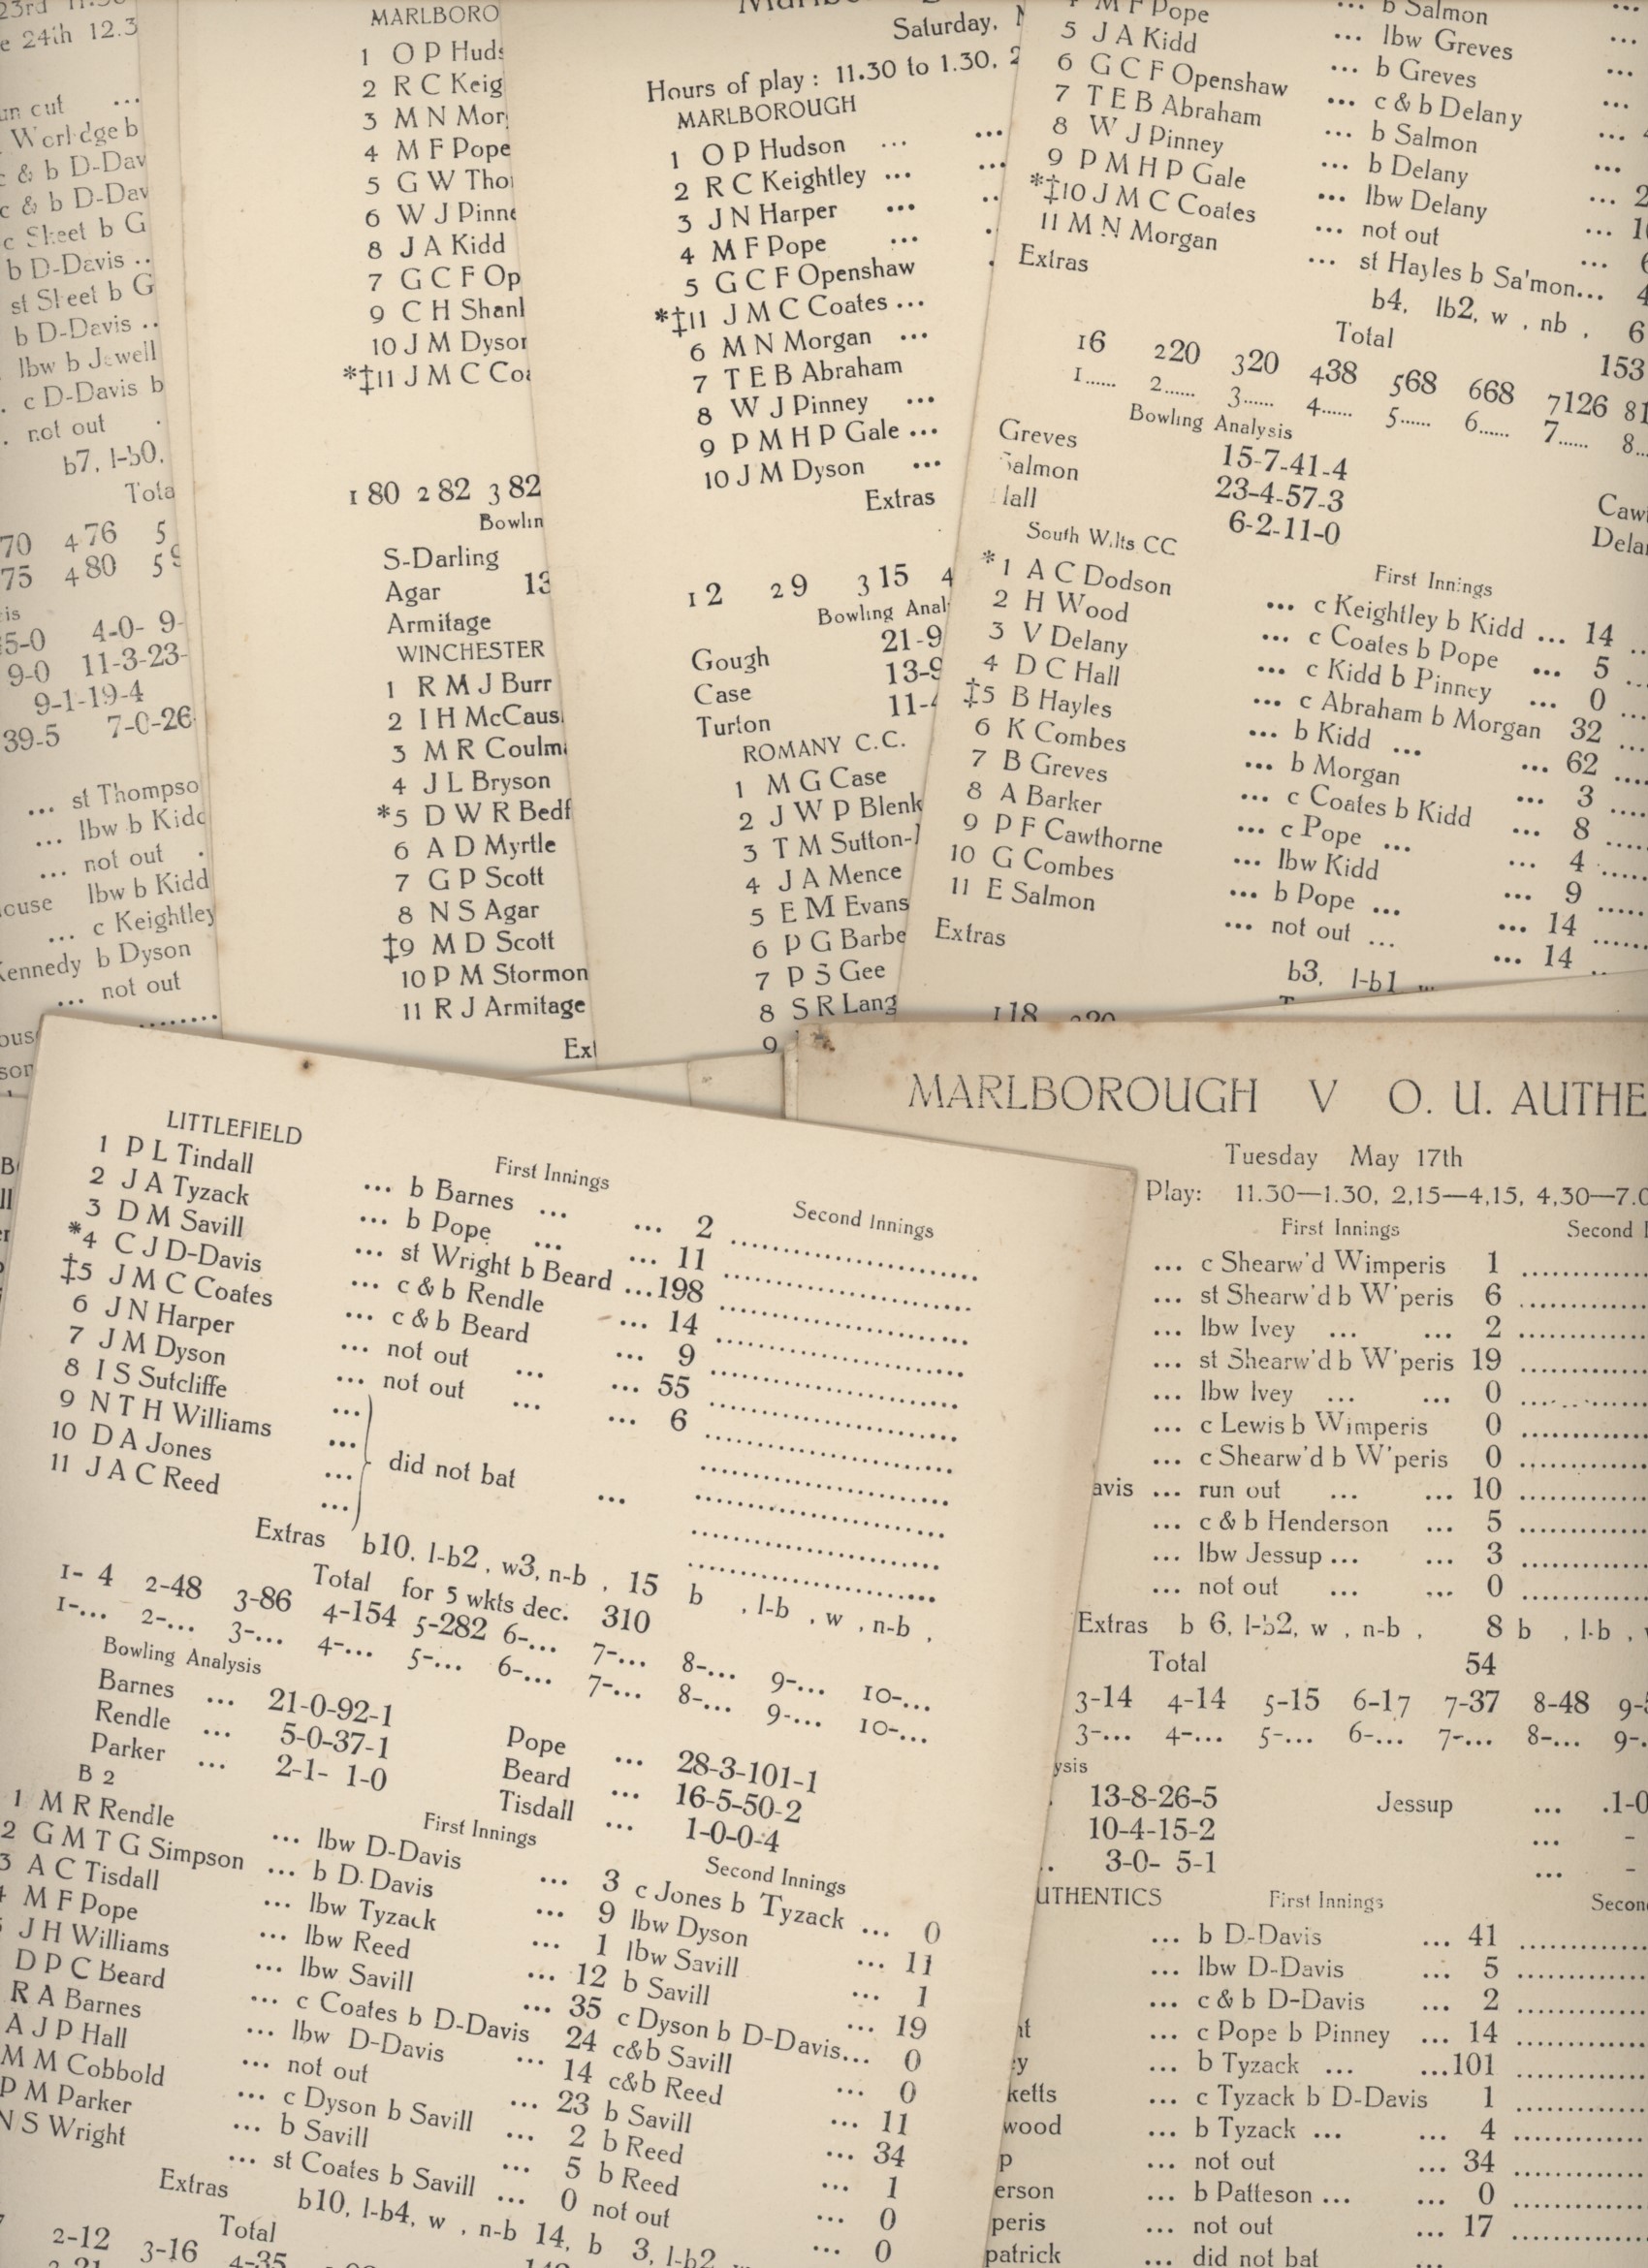 23rd 11.30
e 24th 12.3
un cut ...
Worlidge b
c & b D-Dav
c & b D-Dav
c Skeet b G
b D-Davis ..
st Skeet b G
b D-Davis ..
lbw b Jewell
. c D-Davis b
. not out .
b7, l-b0,
Tota
70 4 76 5
75 4 80 5 9
is
5-0 4-0- 9-
9-0 11-3-23-
9-1-19-4
39-5 7-0-26
... st Thompso
... lbw b Kidd
... not out .
ouse lbw b Kidd
... c Keightley
Kennedy b Dyson
... not out
MARLBORO
1 O P Huds
2 R C Keig
3 M N Mor
4 M F Pope
5 G W Tho
6 W J Pinne
8 J A Kidd
7 G C F Op
9 C H Shanl
10 J M Dyson
*‡11 J M C Coa
1 80 2 82 3 82
Bowlin
S-Darling
Agar 13
Armitage
WINCHESTER
1 R M J Burr
2 I H McCaus
3 M R Coulma
4 J L Bryson
*5 D W R Bedf
6 A D Myrtle
7 G P Scott
8 N S Agar
‡9 M D Scott
10 P M Stormon
11 R J Armitage
Ext
Saturday,
Hours of play : 11.30 to 1.30, 2
MARLBOROUGH
1 O P Hudson ... ...
2 R C Keightley ... ...
3 J N Harper ... ..
4 M F Pope ... .
5 G C F Openshaw .
*‡11 J M C Coates ...
6 M N Morgan ...
7 T E B Abraham
8 W J Pinney ...
9 P M H P Gale ...
10 J M Dyson ...
Extras
1 2 2 9 3 15 4
Bowling Anal
Gough 21-9
Case 13-9
Turton 11-4
ROMANY C.C.
1 M G Case
2 J W P Blenk
3 T M Sutton-
4 J A Mence
5 E M Evans
6 P G Barbe
7 P S Gee
8 S R Lang
9
4 M F Pope ... b Salmon ...
5 J A Kidd ... lbw Greves ...
6 G C F Openshaw ... b Greves ...
7 T E B Abraham ... c & b Delany ...
8 W J Pinney ... b Salmon ... 4
9 P M H P Gale ... b Delany ...
*‡10 J M C Coates ... lbw Delany ... 2
11 M N Morgan ... not out ... 1
Extras ... st Hayles b Sa'mon... 4
b4, lb2, w , nb , 6
Total 153
16 220 320 438 568 668 7126 81
1...... 2...... 3...... 4...... 5...... 6...... 7...... 8...
Bowling Analysis
Greves 15-7-41-4 Caw
Salmon 23-4-57-3 Dela
Hall 6-2-11-0
South Wilts CC First Innings
*1 A C Dodson ... c Keightley b Kidd ... 14 ..
2 H Wood ... c Coates b Pope ... 5 ...
3 V Delany ... c Kidd b Pinney ... 0 ....
4 D C Hall ... c Abraham b Morgan 32 ....
‡5 B Hayles ... b Kidd ... ... 62 ....
6 K Combes ... b Morgan ... 3 .....
7 B Greves ... c Coates b Kidd ... 8 .....
8 A Barker ... c Pope ... ... 4 .....
9 P F Cawthorne ... lbw Kidd ... 9 .....
10 G Combes ... b Pope ... ... 14 ......
11 E Salmon ... not out ... ... 14 ..
Extras b3, l-b1 ...
1 18 2 20
LITTLEFIELD First Innings Second Innings
1 P L Tindall ... b Barnes ... ... 2 ..............................
2 J A Tyzack ... b Pope ... ... 11 ..............................
3 D M Savill ... st Wright b Beard ...198 ..............................
*4 C J D-Davis ... c & b Rendle ... 14 ..............................
‡5 J M C Coates ... c & b Beard ... 9 ..............................
6 J N Harper ... not out ... ... 55 ..............................
7 J M Dyson ... not out ... ... 6 ..............................
8 I S Sutcliffe ... ..............................
9 N T H Williams ... did not bat ... ..............................
10 D A Jones ... ..............................
11 J A C Reed ... ..............................
Extras b10, l-b2 , w3, n-b , 15 b , l-b , w , n-b ,
Total for 5 wkts dec. 310
1- 4 2-48 3-86 4-154 5-282 6-... 7-... 8-... 9-... 10-...
1-... 2-... 3-... 4-... 5-... 6-... 7-... 8-... 9-... 10-...
Bowling Analysis
Barnes ... 21-0-92-1 Pope ... 28-3-101-1
Rendle ... 5-0-37-1 Beard ... 16-5-50-2
Parker ... 2-1- 1-0 Tisdall ... 1-0-0-4
B 2 First Innings Second Innings
1 M R Rendle ... lbw D-Davis ... 3 c Jones b Tyzack ... 0
2 G M T G Simpson ... b D. Davis ... 9 lbw Dyson ... 11
3 A C Tisdall ... lbw Tyzack ... 1 lbw Savill ... 1
4 M F Pope ... lbw Reed ... 12 b Savill ... 19
J H Williams ... lbw Savill ... 35 c Dyson b D-Davis... 0
D P C Beard ... c Coates b D-Davis 24 c&b Savill ... 0
R A Barnes ... lbw D-Davis ... 14 c&b Reed ... 11
A J P Hall ... not out ... 23 b Savill ... 34
M M Cobbold ... c Dyson b Savill ... 2 b Reed ... 1
P M Parker ... b Savill ... 5 b Reed ... 0
N S Wright ... st Coates b Savill ... 0 not out ... 0
Extras b10, l-b4, w , n-b 14, b 3, l-b2
Total
2-12 3-16 4-35
MARLBOROUGH V O. U. AUTHE
Tuesday May 17th
Play: 11.30—1.30, 2,15—4,15, 4,30—7.0
First Innings Second I
... c Shearw'd Wimperis 1 ..............
... st Shearw'd b W'peris 6 ..............
... lbw Ivey ... ... 2 ..............
... st Shearw'd b W'peris 19 ..............
... lbw Ivey ... ... 0 ..............
... c Lewis b Wimperis 0 ..............
... c Shearw'd b W'peris 0 ..............
avis ... run out ... ... 10 ..............
... c & b Henderson ... 5 ..............
... lbw Jessup ... ... 3 ..............
... not out ... ... 0 ..............
Extras b 6, l-b2, w , n-b , 8 b , l-b ,
Total 54
3-14 4-14 5-15 6-17 7-37 8-48 9-5
3-... 4-... 5-... 6-... 7-... 8-... 9-.
ysis
. 13-8-26-5 Jessup ... .1-0
10-4-15-2 ... -
.. 3-0- 5-1 ... -
UTHENTICS First Innings Secon
... b D-Davis ... 41 ..............
... lbw D-Davis ... 5 ..............
... c & b D-Davis ... 2 ..............
nt ... c Pope b Pinney ... 14 ..............
ey ... b Tyzack ... ...101 ..............
ketts ... c Tyzack b D-Davis 1 ..............
wood ... b Tyzack ... ... 4 ..............
p ... not out ... 34 ..............
erson ... b Patteson ... ... 0 ..............
peris ... not out ... 17 ..............
patrick ... did not bat ...